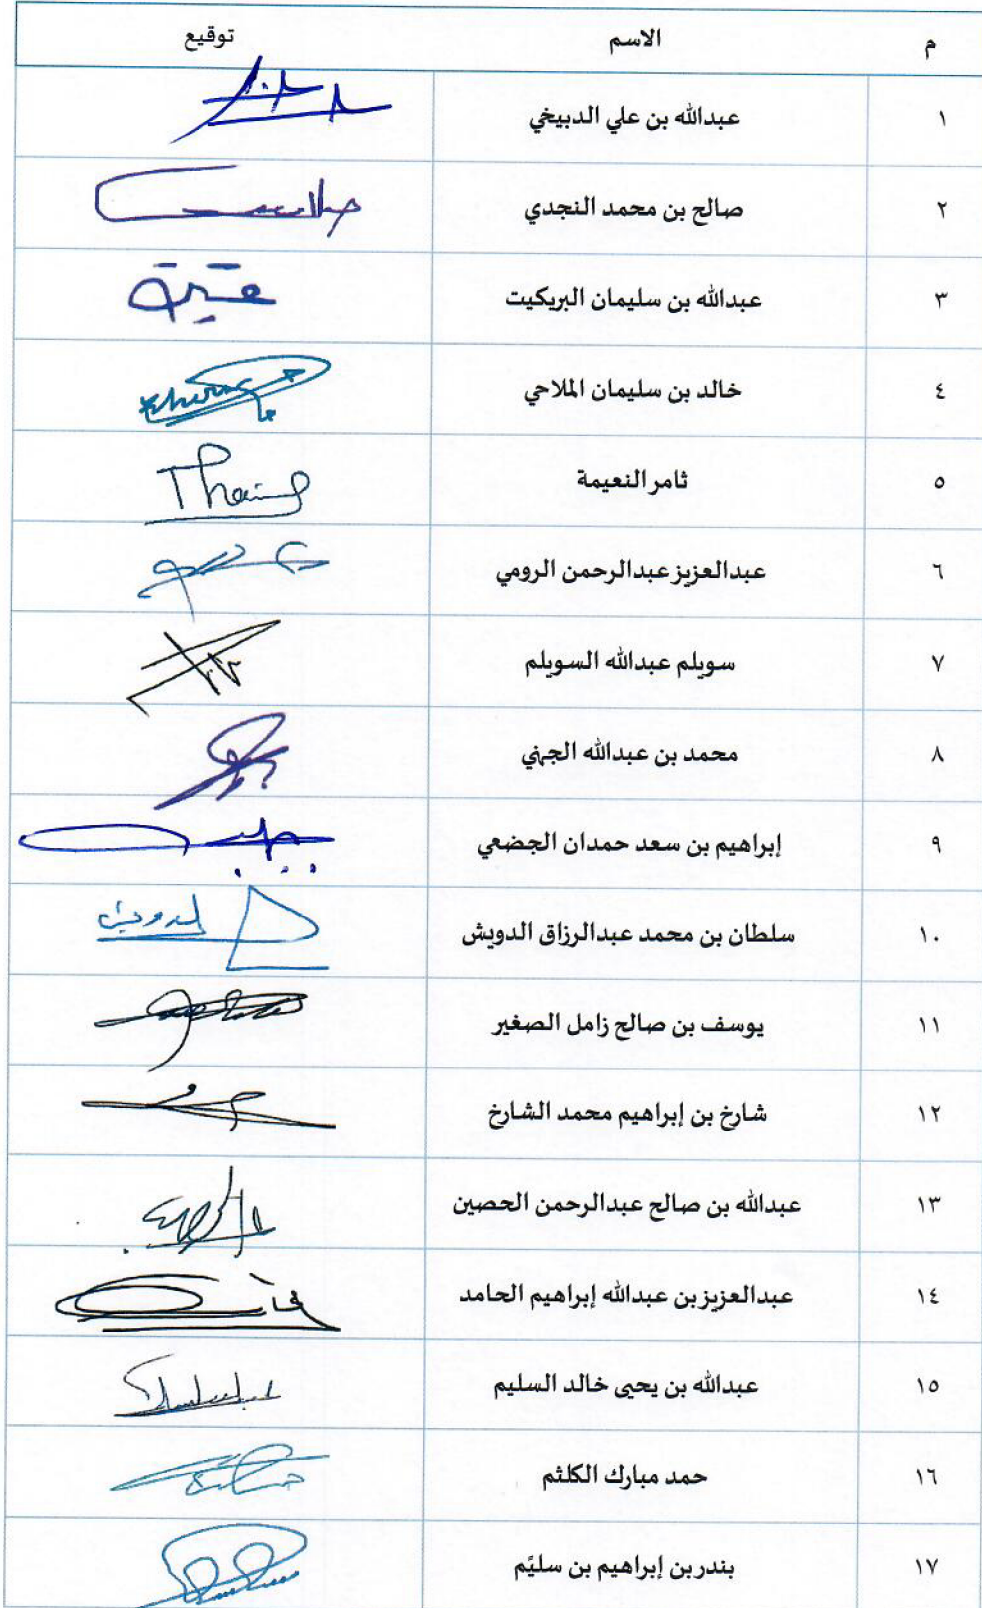 م الاسم توقيع
١ عبدالله بن علي الدبيخي
٢ صالح بن محمد النجدي
٣ عبدالله بن سليمان البريكيت
٤ خالد بن سليمان الملاحي
٥ ثامر النعيمة
٦ عبدالعزيز عبدالرحمن الرومي
٧ سويلم عبدالله السويلم
٨ محمد بن عبدالله الجهني
٩ إبراهيم بن سعد حمدان الجضعي
١٠ سلطان بن محمد عبدالرزاق الدويش الدويش
١١ يوسف بن صالح زامل الصغير
١٢ شارخ بن إبراهيم محمد الشارخ
١٣ عبدالله بن صالح عبدالرحمن الحصين
١٤ عبدالعزيز بن عبدالله إبراهيم الحامد
١٥ عبدالله بن يحيى خالد السليم
١٦ حمد مبارك الكلثم
١٧ بندر بن إبراهيم بن سليّم